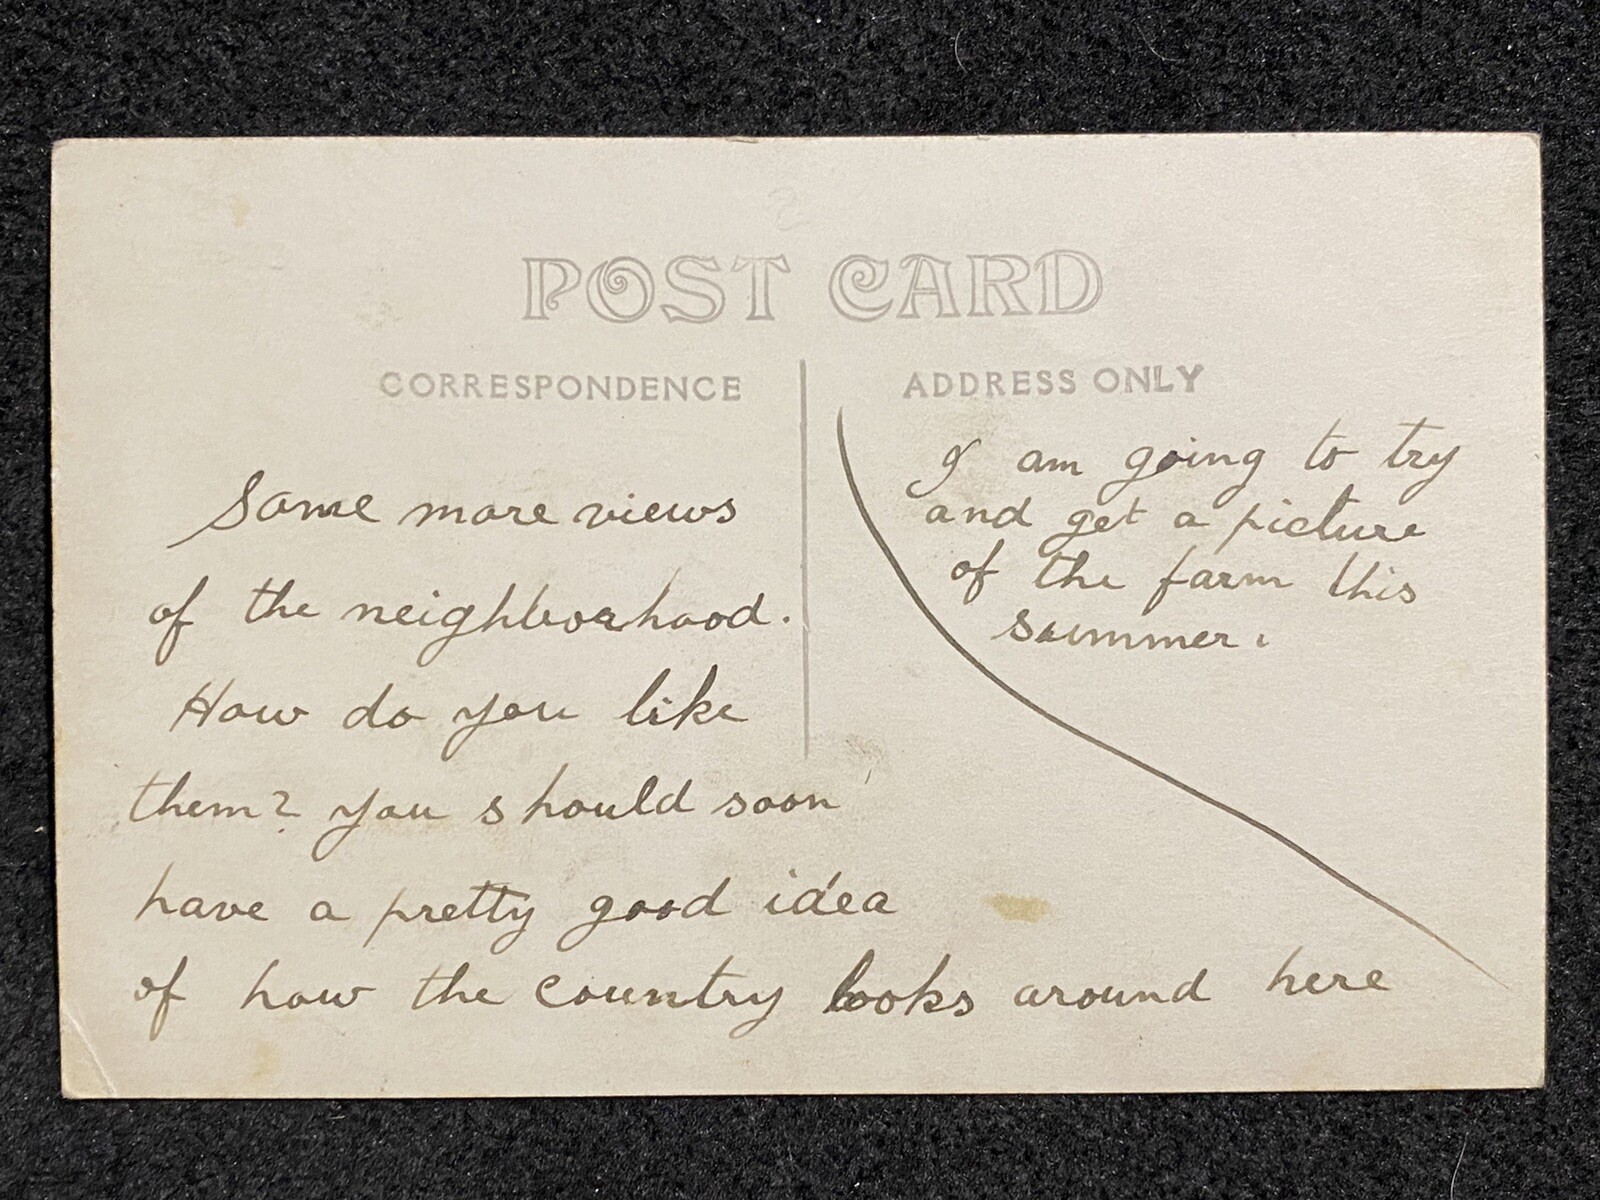 POST CARD
CORRESPONDENCE
ADDRESS ONLY
Some more views
of the neighborhood.
How do you like
them? You should soon
have a pretty good idea
of how the country looks around here
I am going to try
and get a picture
of the farm this
summer.